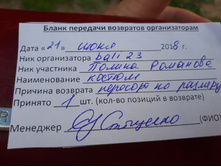 Бланк передачи возвратов организаторам
Дата «21» июня 2018 г.
Ник организатора bali 23
Ник участника Полина Романова
Наименование костюм
Причина возврата не
Принято 1 шт. (кол-во позиций в возврате)
Менеджер (ФИО